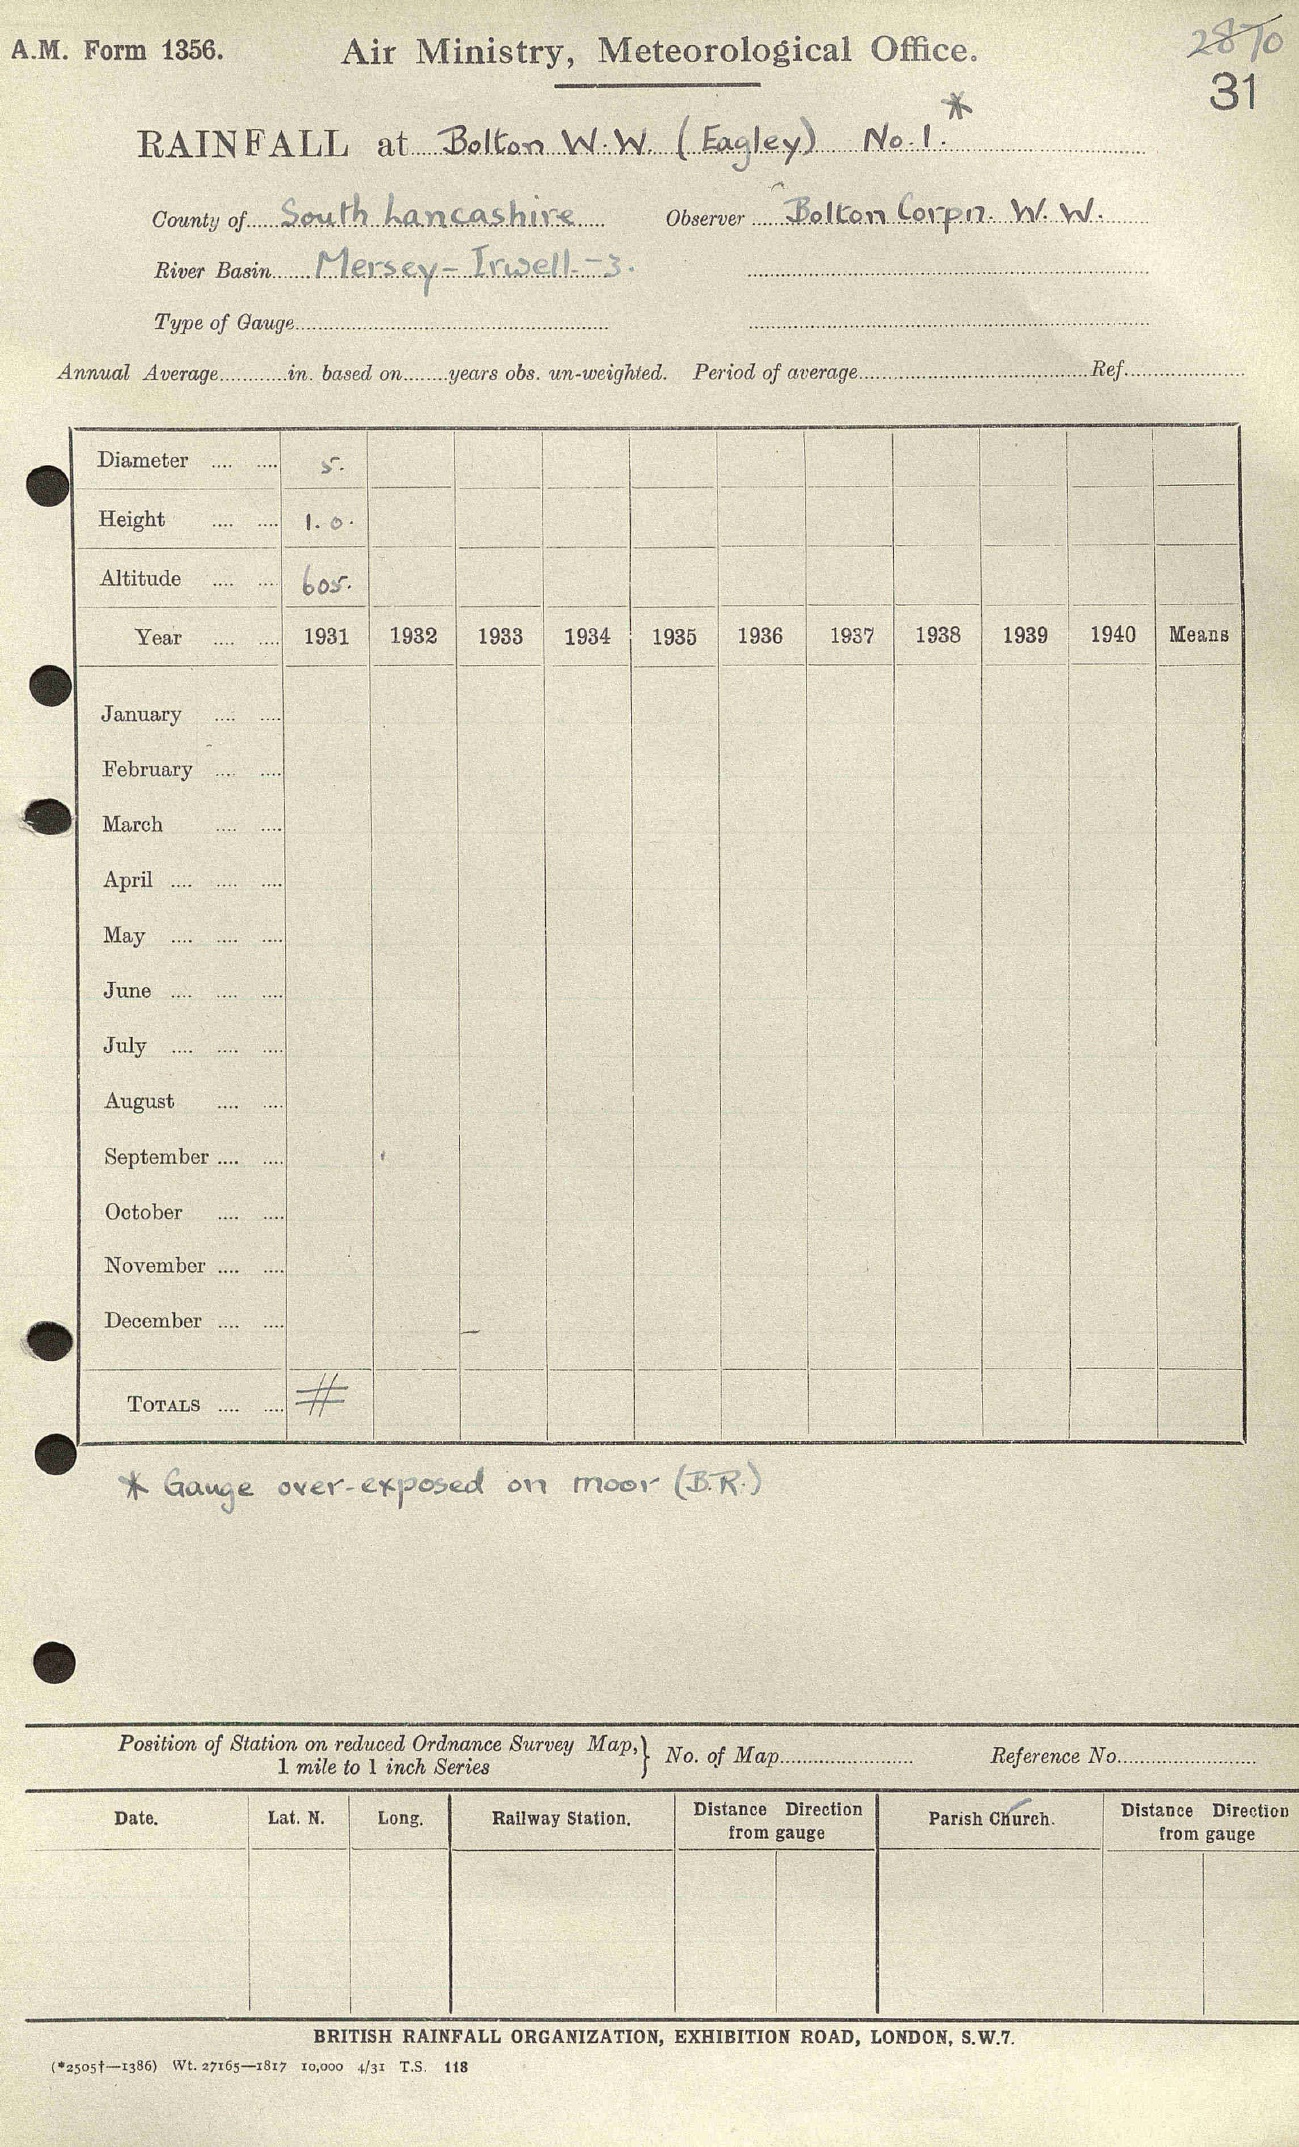 A.M. Form 1356. Air Ministry, Meteorological Office. 2870
31
RAINFALL at Bolton W.W. (Eagley) No.1.*
County of South Lancashire Observer Bolton Corpn. W.W.
River Basin Mersey-Irwell-3.
Type of Gauge
Annual Average in. based on years obs. un-weighted. Period of average Ref.
Diameter 5.
Height 1.0.
Altitude 605.
Year 1931 1932 1933 1934 1935 1936 1937 1938 1939 1940 Means
January
February
March
April
May
June
July
August
September
October
November
December
TOTALS #
* Gauge over-exposed on moor (B.R.)
Position of Station on reduced Ordnance Survey Map,
1 mile to 1 inch Series } No. of Map Reference No.
Date. Lat. N. Long. Railway Station. Distance Direction from gauge Parish Church. Distance Direction from gauge
BRITISH RAINFALL ORGANIZATION, EXHIBITION ROAD, LONDON, S.W.7.
(*2505†—1386) Wt. 27165—1817 10,000 4/31 T.S. 118